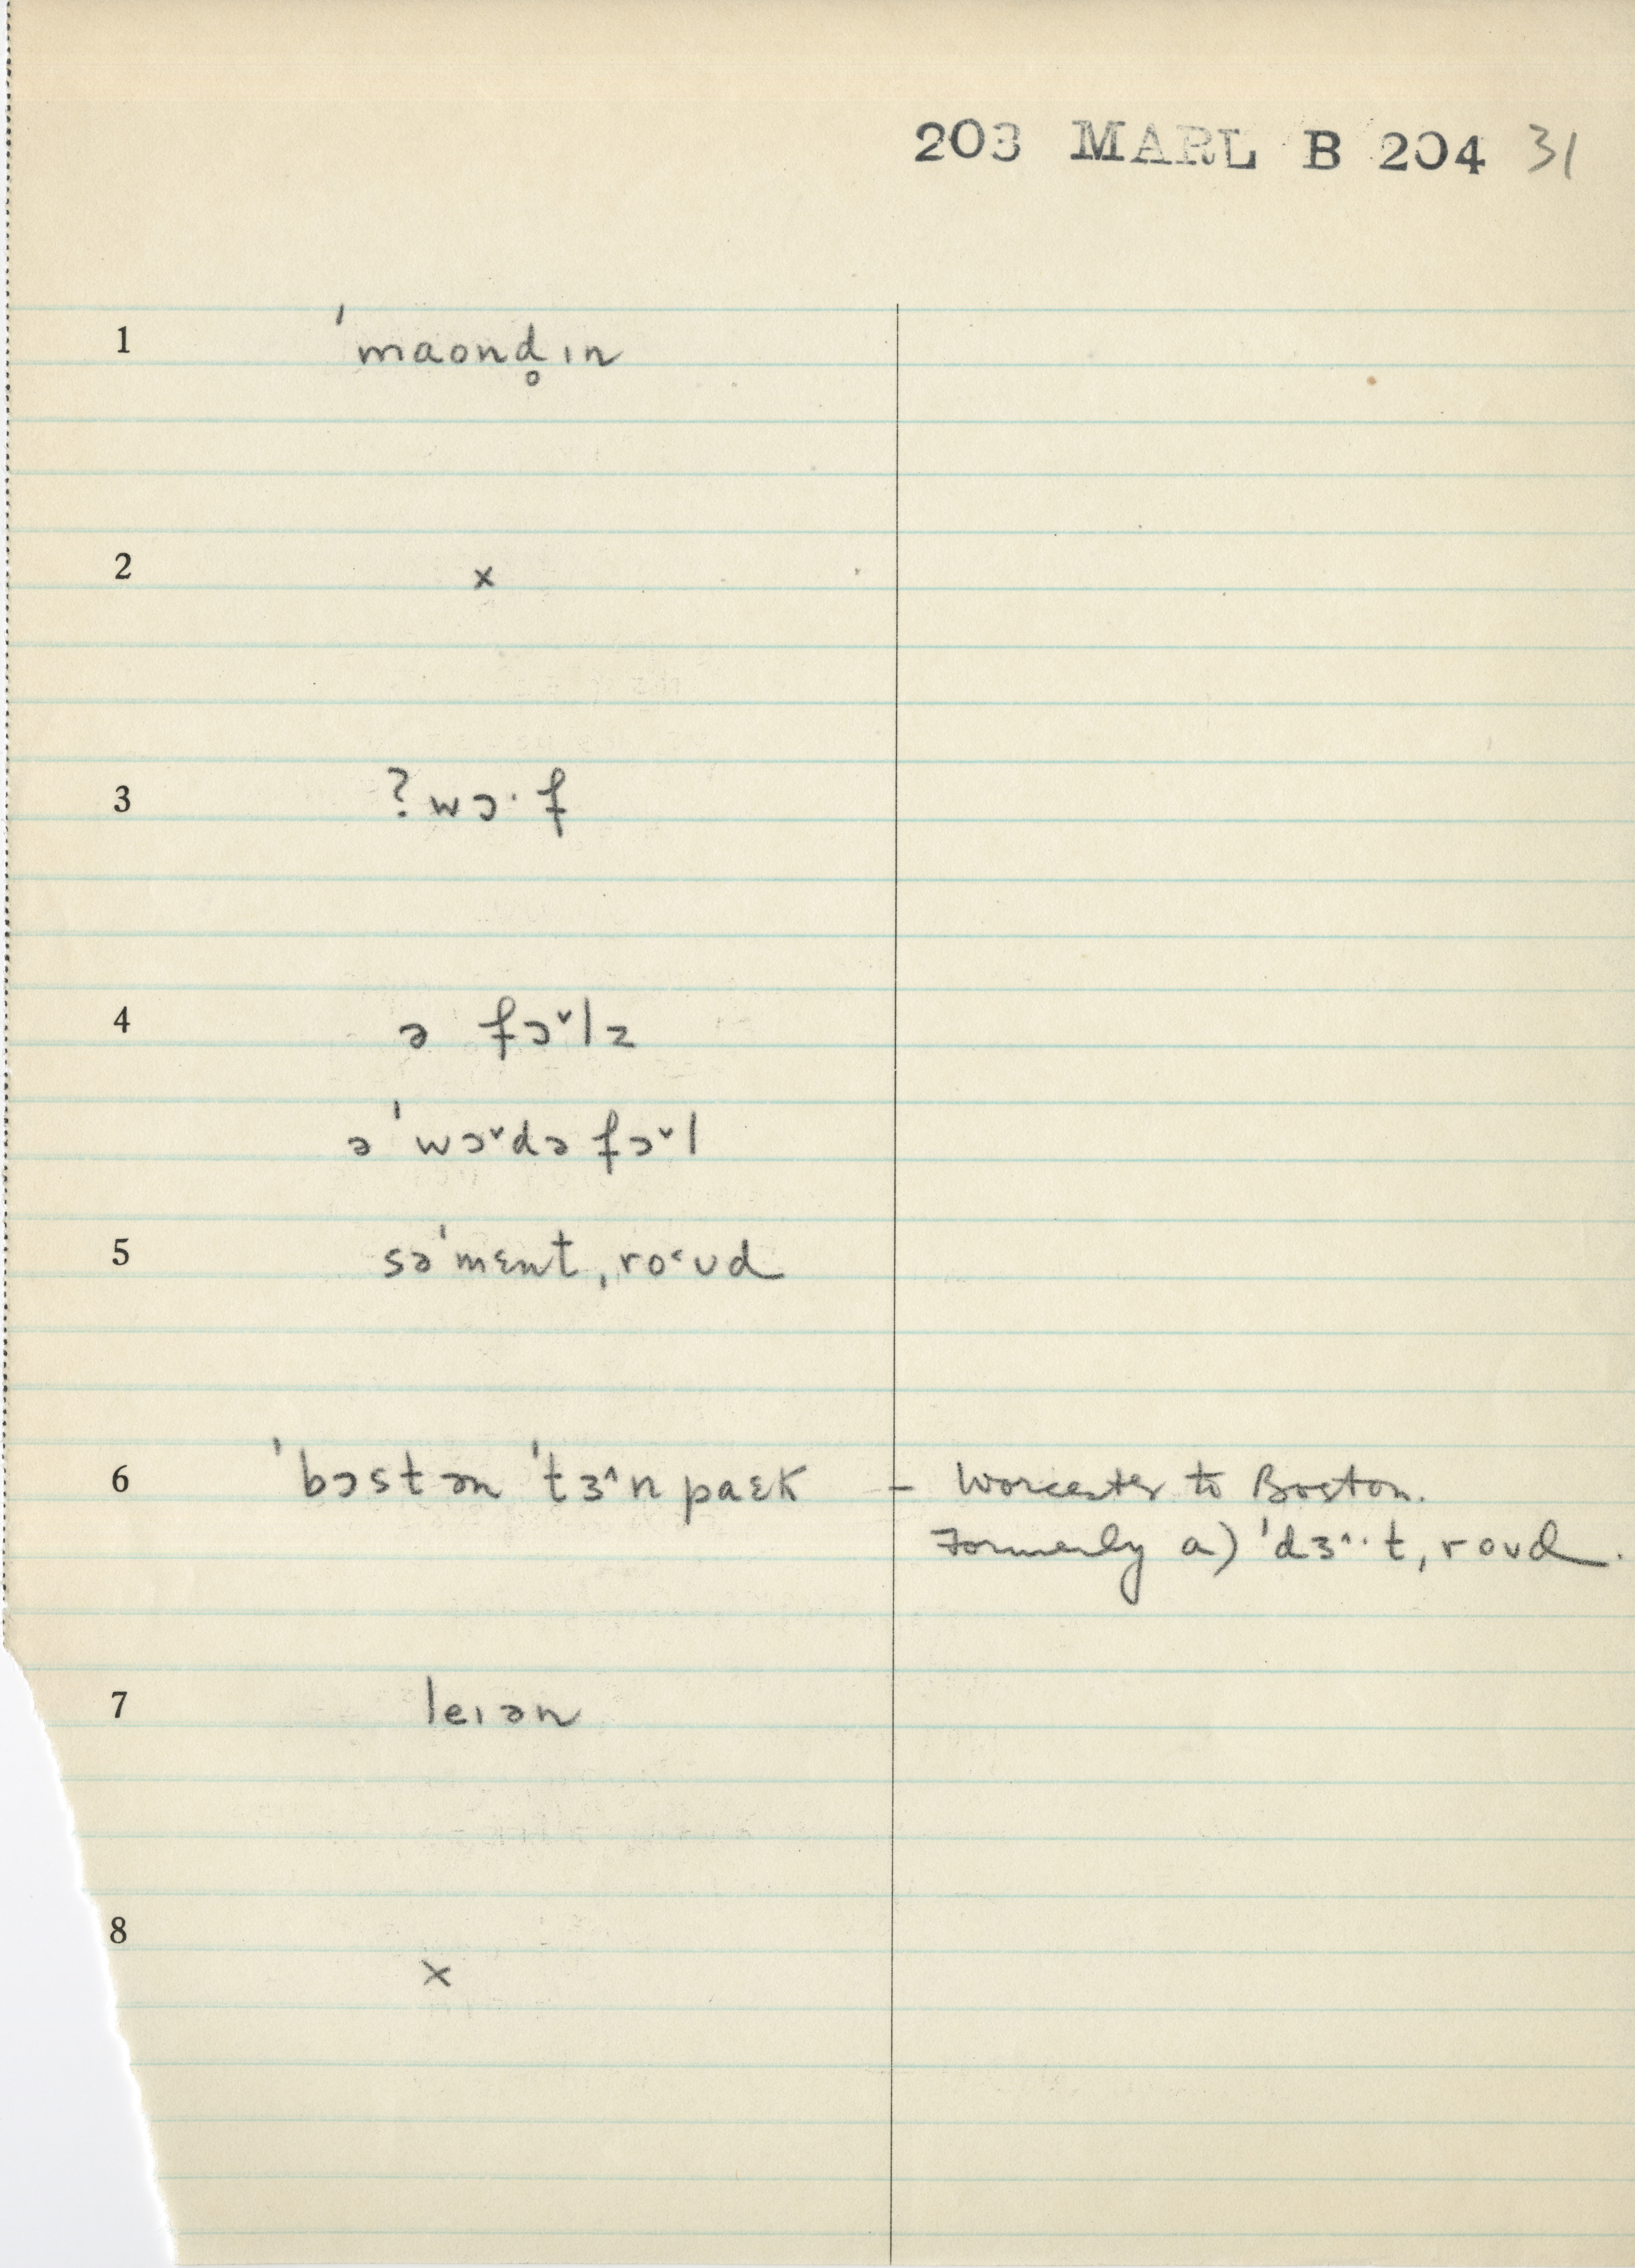 203 MARL B 204 31
1 ˈmaond̥ɪn
2 x
3 ? wɔ·f
4 ə fɔ˅lz
ə ˈwɔ˅də fɔ˅l
5 səˈmɛnt ˌro˂ʊd
6 ˈbɔstən ˈtɜ˄n paɛk – Worcester to Boston.
Formerly a) ˈdɜ˄·t ˌroʊd.
7 leɪən
8 x